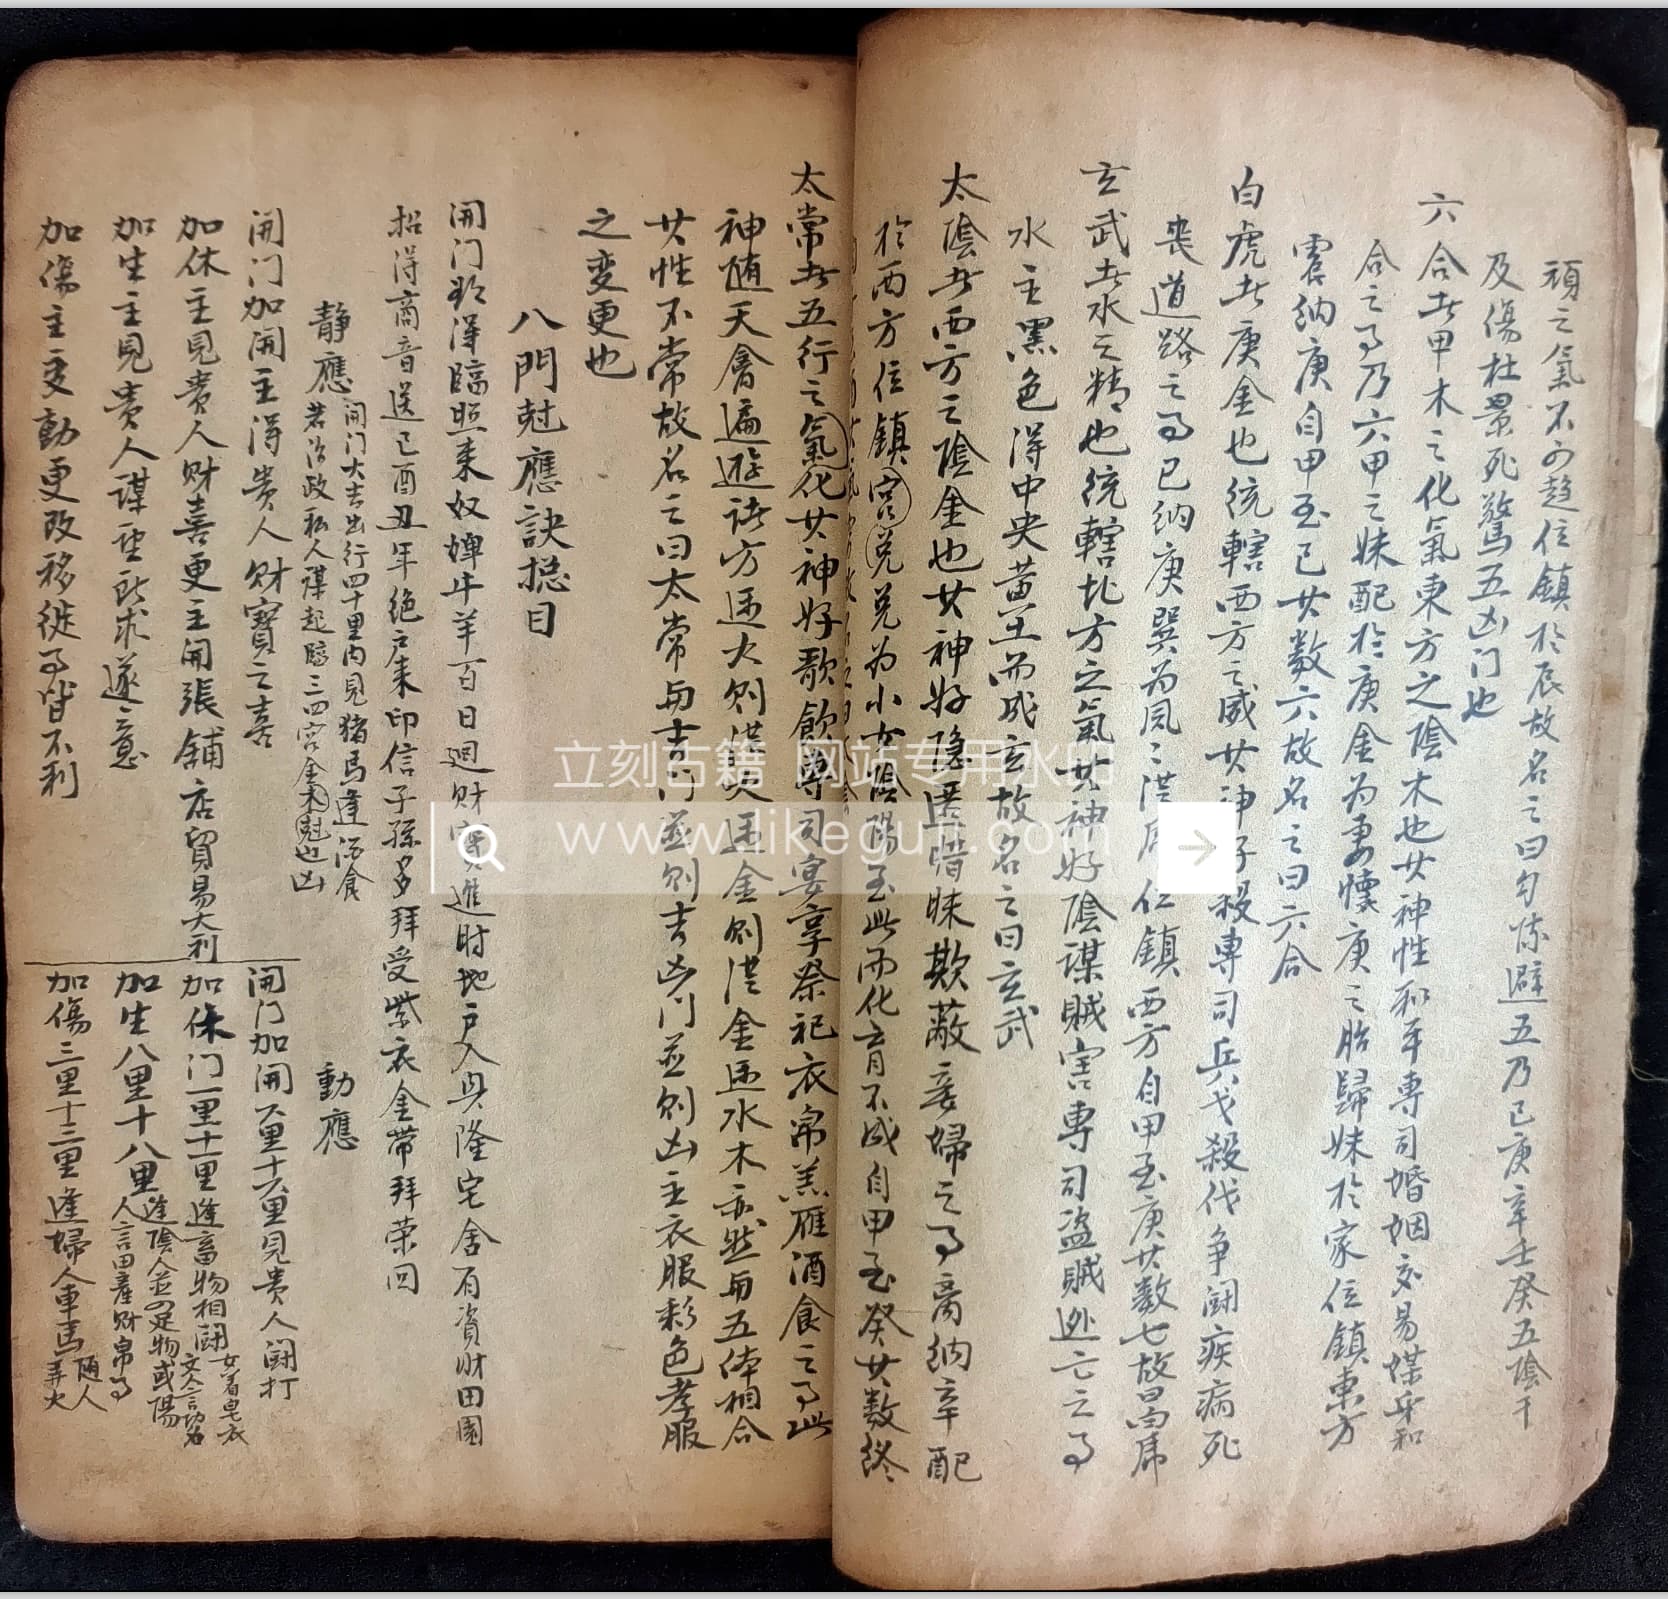 頑之氣不可趨位鎮於辰故名之曰勾陳避五乃己庚辛壬癸五陰干
及傷杜景死驚五凶门也
六合者甲木之化氣東方之陰木也其神性和平專司婚姻交易媒牙和
合之事乃六甲之妹配於庚金为妻懐庚之胎歸妹於家位鎮東方
震納庚自甲至己其数六故名之曰六合
白虎者庚金也統轄西方之威其神好殺專司兵戈殺伐争闘疾病死
喪道路之事已纳庚巽为風位鎮西方自甲至庚其数七故曰白虎
玄武者水之精也統轄北方之氣其神好陰謀賊害專司盗贼逃亡之事
水主黑色得中央黄土而成玄故名之曰玄武
太陰者西方之陰金也其神好隐匿暗昧欺蔽妾婦之事离纳辛配
於西方位鎮宫兑兑为小女陰陽至此而化育不成自甲至癸其数终
太常者五行之氣化其神好歌飲專司宴享祭祀衣帛羔雁酒食之事此
神随天禽遍遊諸方遇火則從火遇金則從金遇水木亦然与五体相合
其性不常故名之曰太常与吉门並則吉凶门並則凶主衣服彩色孝服
之变更也
八門尅應訣捴目
開门欲得臨照来奴婢牛羊百日廻财寳進时地户入興隆宅舍有資财田園
招得商音送己酉丑年绝户来印信子孫多拜受紫衣金带拜荣回
静應
開门大吉出行四十里内見猪馬逢酒食
若治政私人谋起臨三四宫金木尅也凶
動應
開门加開主得贵人财寳之喜
加休主見贵人财喜更主開張鋪店貿易大利
加生主見贵人谋望所求遂意
加傷主变動更改移徙事皆不利
開门加開六里十六里見贵人闘打
加休门一里十一里逢畜物相闘女着皂衣文人言功名
加生八里十八里逢陰人並四足物或陽人言田産财帛事
加傷三里十三里逢婦人車馬随人弄火
立刻古籍 网站专用水印
www.likeguji.com